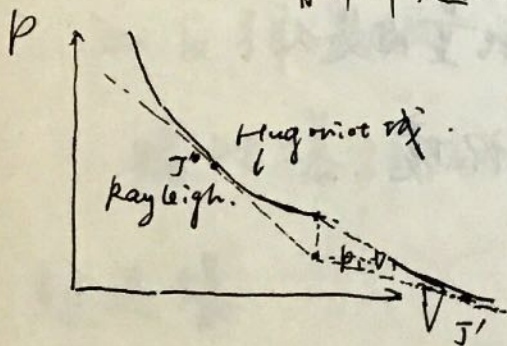 P
Hugoniot 线.
J"
Rayleigh.
P₁ V₁
V
J'